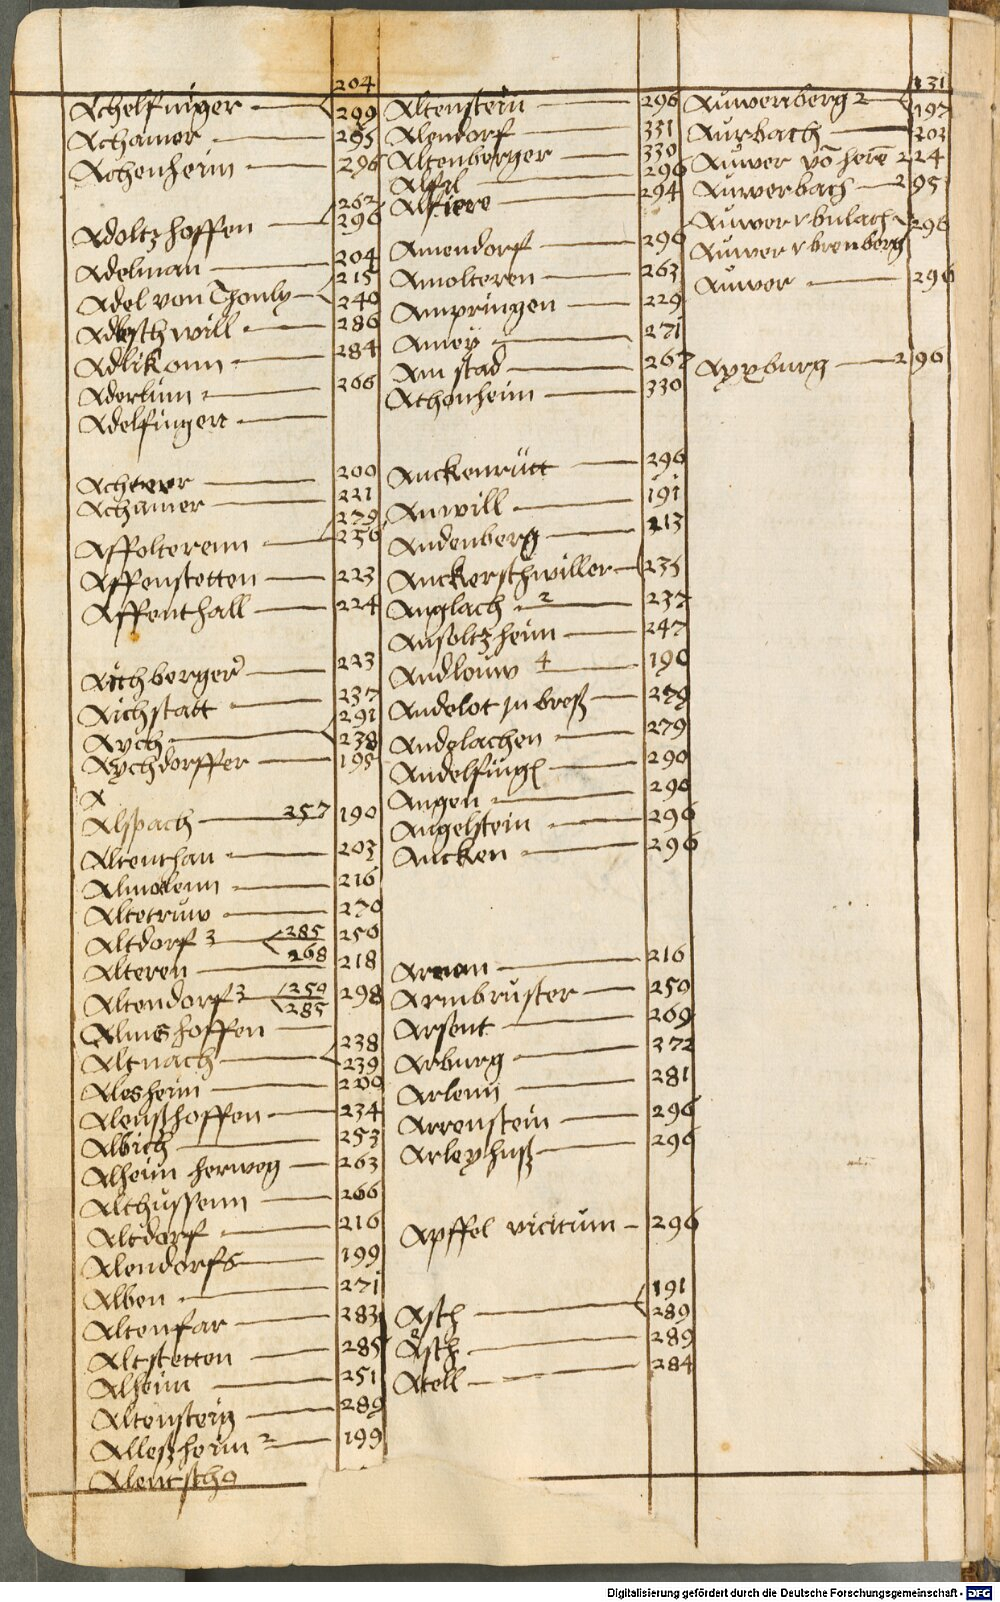 204
Achelfinger 299
Achamer 295
Achenheim 296
262
Adoltzhoffen 296
Adelman 204
Adel von Thonly 215
240
will 286
Adlikonn 284
Aderlinn 266
Adelfingen
Achterer 200
Achamer 221
279
Affolterenn 236
Affenstetten 223
Affenthall 224
Aichberger 223
Aichstatt 237
291
Aych 238
Aychdorffer 195
A
Alspach 257 190
Altenthan 203
Almolenn 216
Altetruw 270
Altdorf 3 285 250
268
Alteren 218
Altendorf 3 250 298
285
Almshoffen
238
Altnach 239
Alesheim 209
Alenßhoffen 234
Albich 253
Alheim herweg 263
Althussenn 266
Altdorf 216
Alendorfs 199
Alben 271
Altenfar 283
Altstetten 285
Alheim 251
Altenstein 289
Alleßheim 2 199
Alentsch
Altenstein 296
Alendorf 331
Altenberger 330
296
Alfiere 294
Amendorf 296
Amolteren 263
Ampringen 229
Amey 271
Am stad 267
Athonheim 330
Anckenrütt 296
Anwill 191
Andenberg 213
Anckerschwiller 235
Anglach 2 237
Ansoltzheim 247
Andlouw 4 190
Andelot jn breß 279
Andelachen 279
Andelfing 290
Angen 290
Angelstein 296
Ancken 296
216
Armbruster 250
Arsent 269
Arburg 272
Arlenn 281
Arrenstein 296
Arleyhuß 296
Apffel vicitum 296
191
Asch 289
Äsch 289
Atell 284
231
Auwenberg 2 197
Aurbach 203
Auwer vō herē 224
Auwerbach 295
Auwer v bulach 296
Auwer v brenberg
Auwer 296
Axxburg 296
Digitalisierung gefördert durch die Deutsche Forschungsgemeinschaft - DFG